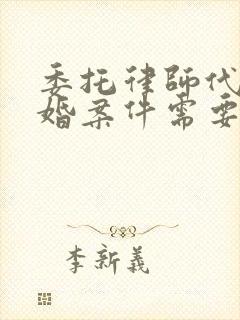 委托律師代
婚案件需要
李新義